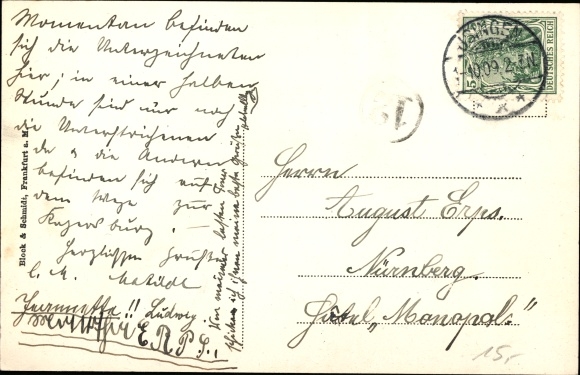 Momentan befinden
sich die Unterzeichneten
hier, in einer halben
Stunde sind nur noch
die Unterstrichenen
da & die Andern
befinden sich auf
dem Wege zur
Kapersburg. –
Herzlichen Gruß
L. M. Matilde
!! Ludwig
ERPS.
schicken ich Ihnen meine besten Grüßen
Block & Schmidt, Frankfurt a. M.
USINGEN
10.09. 2-3 N
DEUTSCHES REICH
5
Herrn
August Erps.
Nürnberg.
Hotel „Monopol."
15,-